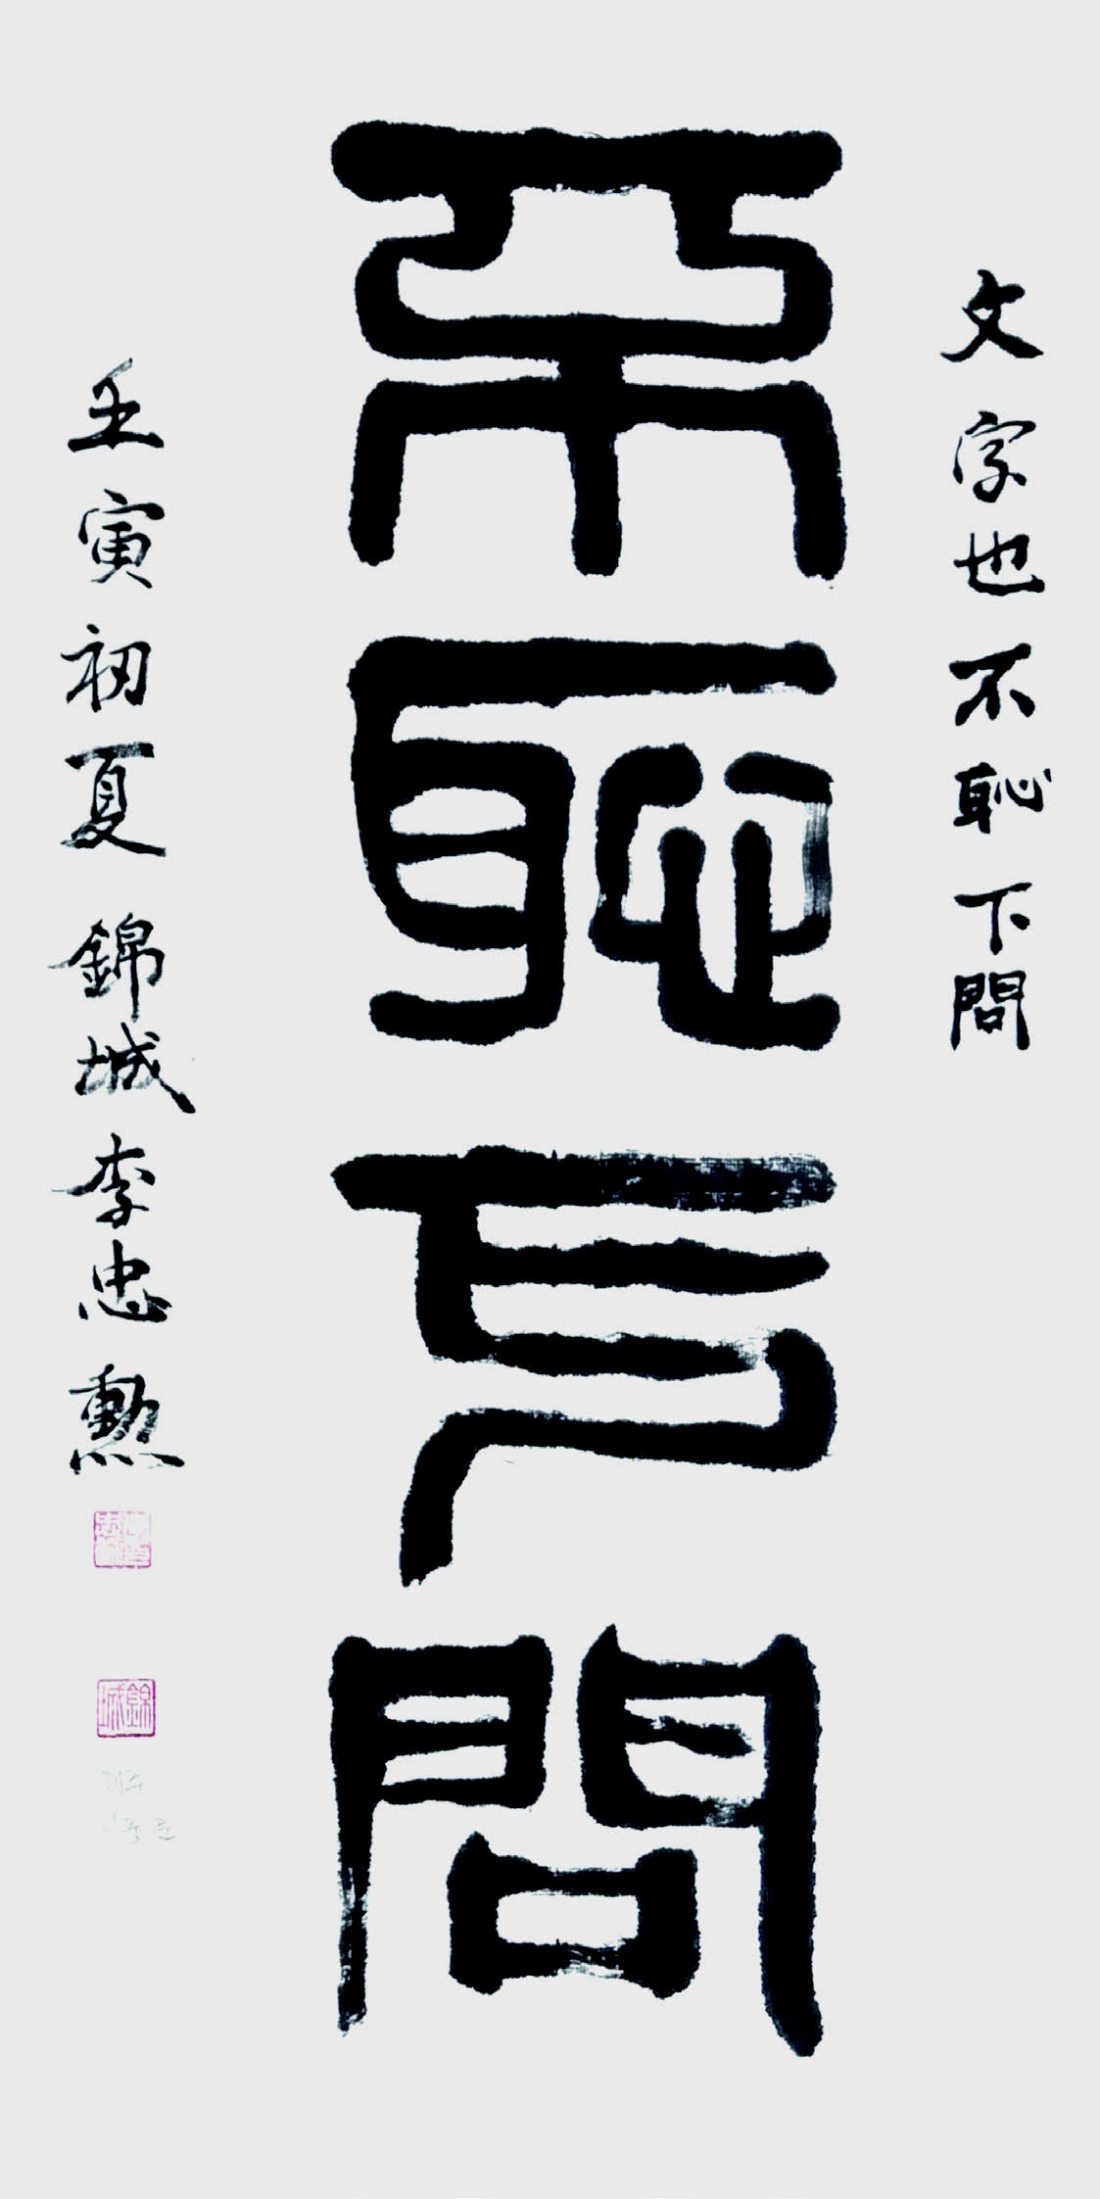 文字也不恥下問
不恥下問
壬寅初夏 錦城李忠勲
錦城